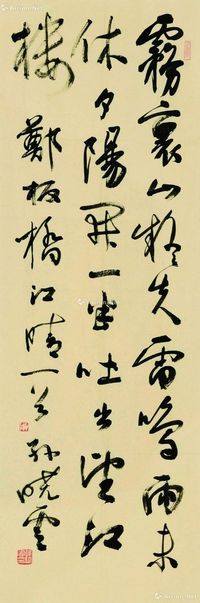 霧裏山疑失雷鳴雨未
休夕陽開一半吐出望江
樓 鄭板橋江晴一首 孫曉雲